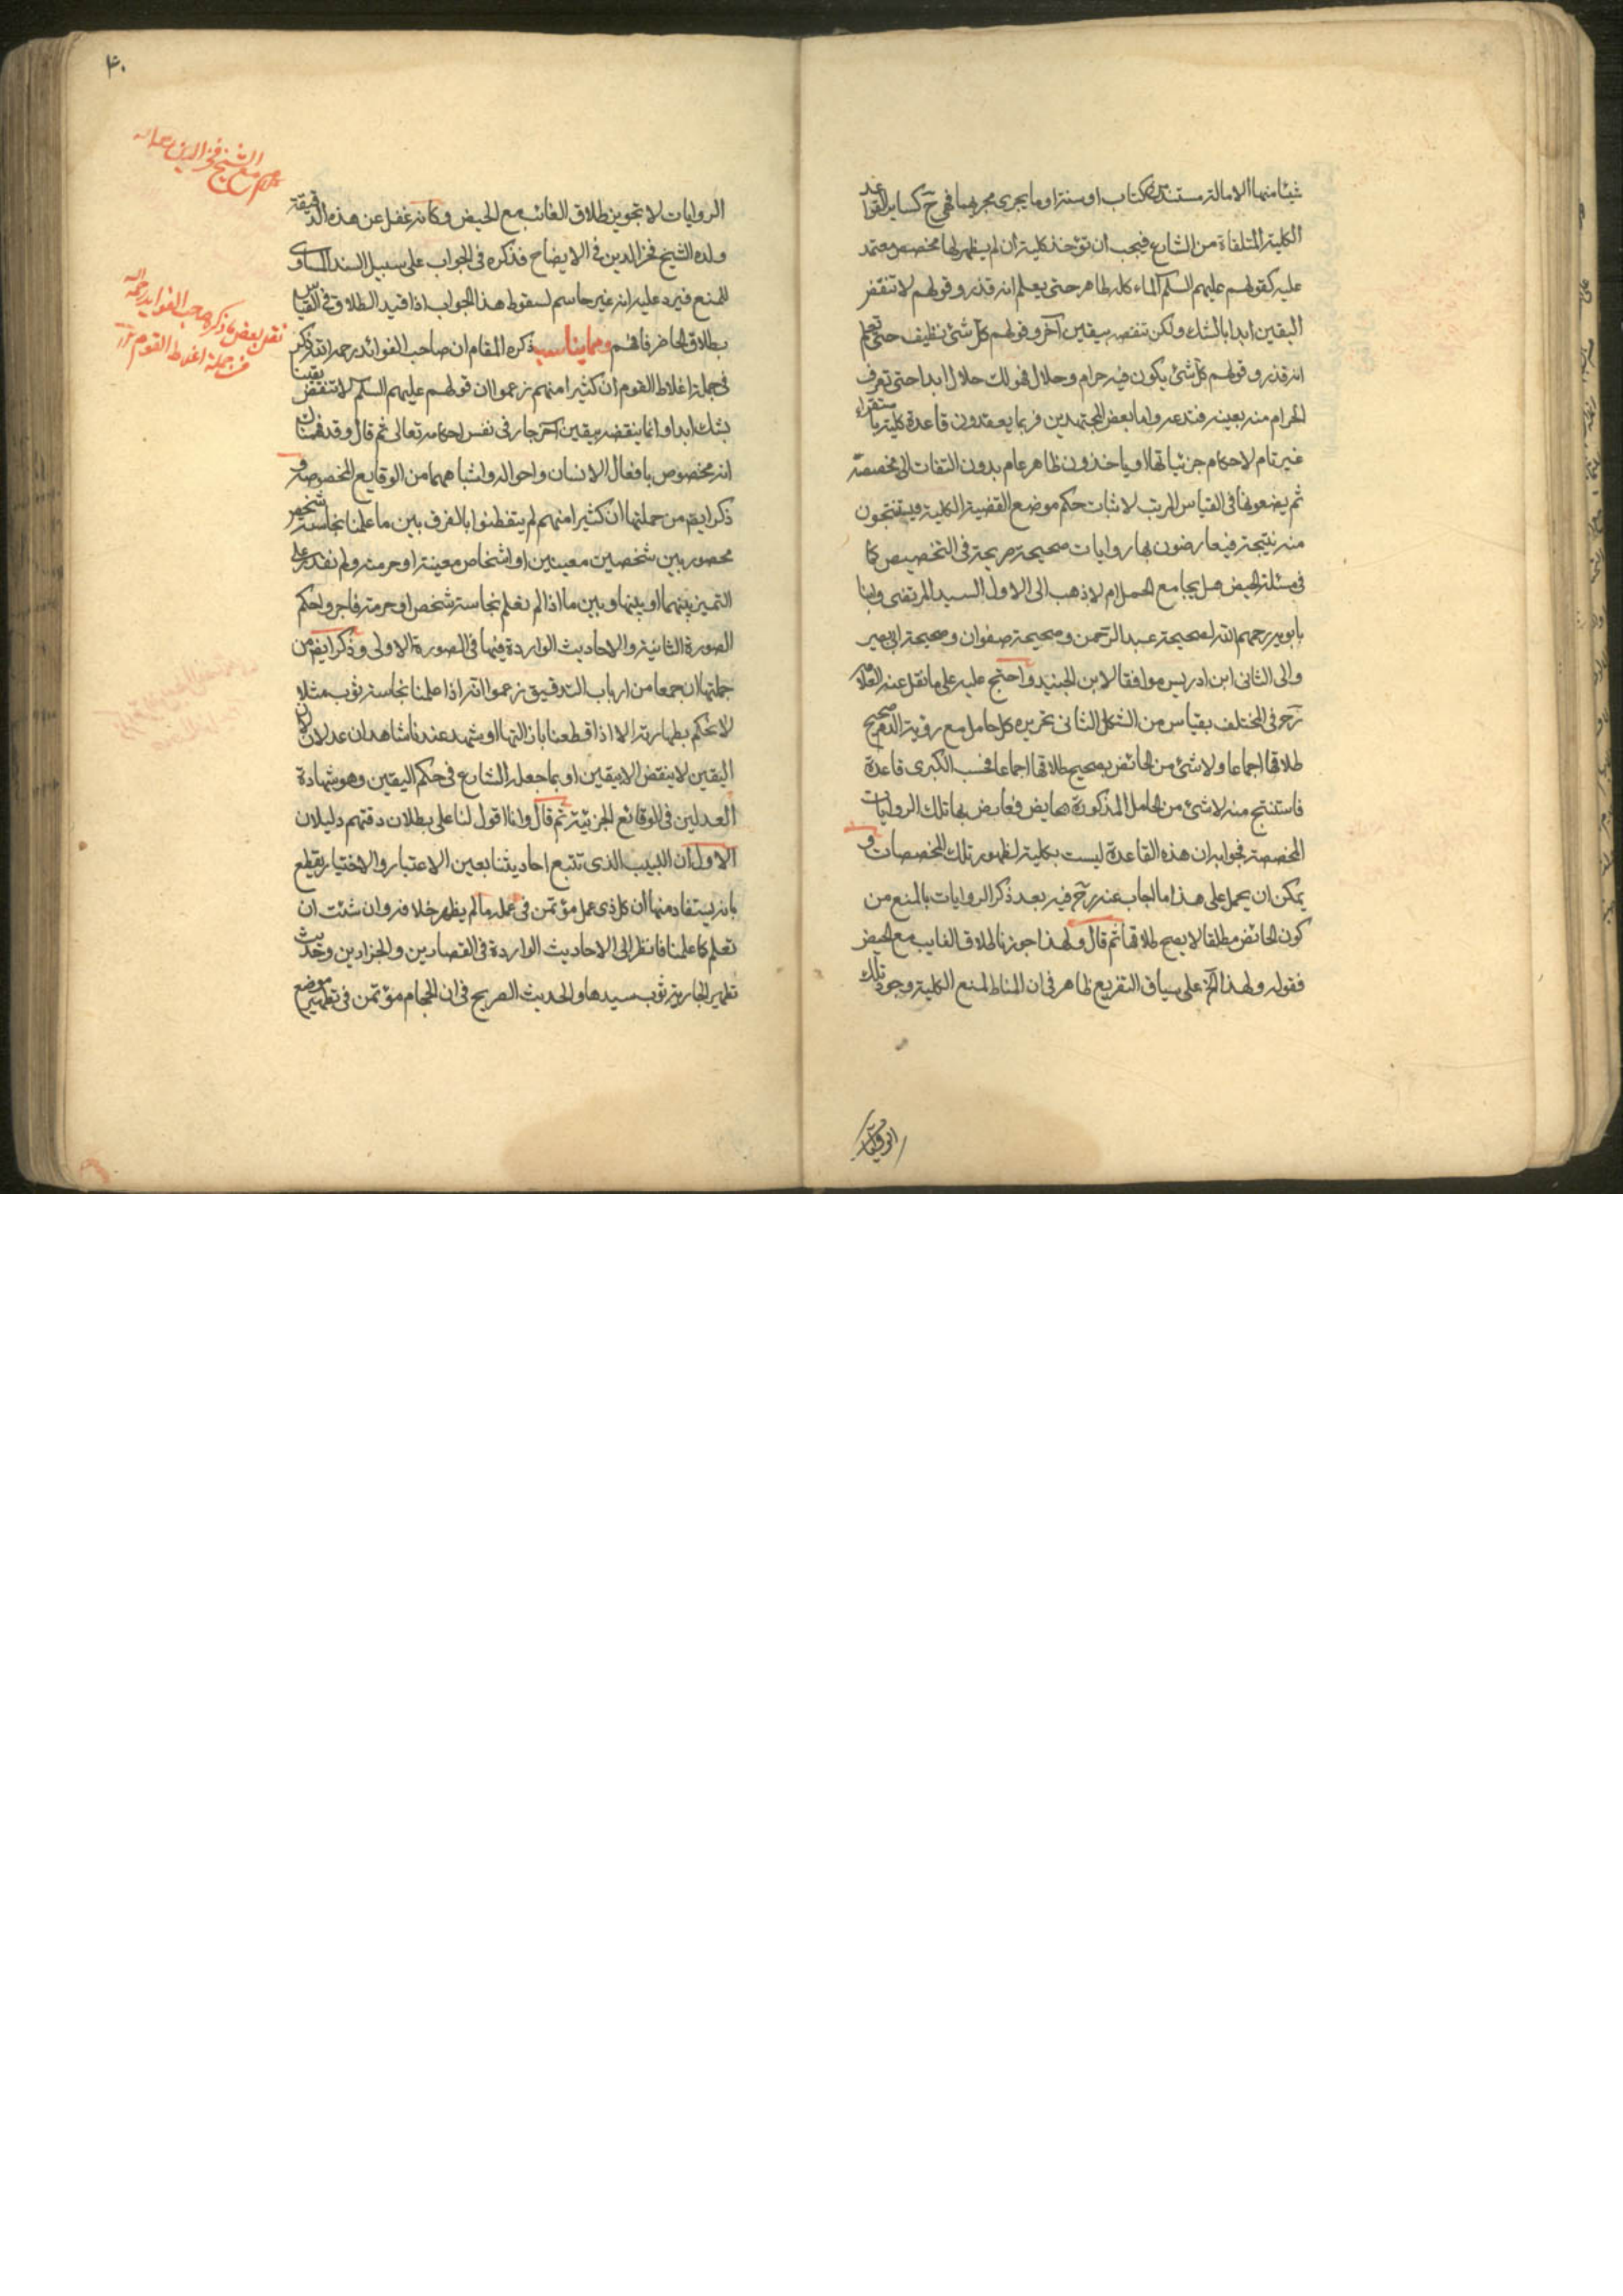 شيئا منها الا ما له مستند من كتاب او سنة او ما يجرى مجريهما فهى ح كساير القواعد
الكلية المتلقاة من الشارع فيجب ان تؤخذ كلية ان لم يظهر لها مخصص معتمد
عليه كقولهم عليهم السلم الماء كله طاهر حتى يعلم انه قذر وقولهم لا تنقض
اليقين ابدا بالشك ولكن تنقضه بيقين آخر وقولهم كل شئ نظيف حتى تعلم
انه قذر وقولهم كل شئ يكون فيه حرام وحلال فهو لك حلال ابدا حتى تعرف
الحرام منه بعينه فتدعه واما بعض المجتهدين فربما يعقدون قاعدة كلية باستقراء
غير تام لاحكام جزئياتها او ياخذون ظاهر عام بدون التفات الى مخصصه
ثم يضعونها فى القياس المرتب لاثبات حكم موضع القضية الكلية فيستنتجون
منه نتيجة فيعارضون بها روايات صحيحة صريحة فى التخصيص كما
فى مسئلة الحيض هل يجامع الحمل ام لا ذهب الى الاول السيد المرتضى وابنا
بابويه رحمهم الله لصحيحة عبد الرحمن وصحيحة صفوان وصحيحة ابى بصير
والى الثانى ابن ادريس موافقا لابن الجنيد واحتج عليه على ما نقل عنه العلامة
ره فى المختلف بقياس من الشكل الثانى تحريره كل حامل مع رؤية الدم صحيح
طلاقها اجماعا ولا شئ من الحائض بصحيح طلاقها اجماعا فحسب الكبرى قاعدة
فاستنتج منه لا شئ من الحامل المذكورة بحايض فعارض بها تلك الروايات
المخصصة فجوابه ان هذه القاعدة ليست بكلية لظهور تلك المخصصات و
يمكن ان يحمل على هذا ما اجاب عنه ره فيه بعد ذكر الروايات بالمنع من
كون الحائض مطلقا لا يصح طلاقها ثم قال ولهذا جوزنا طلاق الغايب مع الحيض
فقوله ولهذا الخ على سياق التفريع ظاهر فى ان المناط لمنع الكلية وجود تلك
الروايات لا تجويز طلاق الغائب مع الحيض وكانه غفل عن هذه الدقيقة
ولده الشيخ فخر الدين فى الايضاح فذكره فى الجواب على سبيل السند المساوى
للمنع فيرد عليه انه غير حاسم لسقوط هذا الجواب اذا قيد الطلاق فى القياس
بطلاق الحاضر فافهم ومما يناسب ذكره المقام ان صاحب الفوائد رحمه الله ذكر
فى جملة اغلاط القوم ان كثيرا منهم زعموا ان قولهم عليهم السلم لا تنقض يقينا
بشك ابدا وانما ينقضه بيقين آخر جار فى نفس احكامه تعالى ثم قال وقد فهمناك
انه مخصوص بافعال الانسان واحواله واشباههما من الوقايع المخصوصة و
ذكر ايضا من جملتها ان كثيرا منهم لم يتفطنوا بالفرق بين ما علمنا نجاسة شخص
محصور بين شخصين معينين او اشخاص معينة او حرمته ولم نقدر على
التميز بينهما او بينها وبين ما اذا لم نعلم نجاسة شخص او حرمته فاجروا حكم
الصورة الثانية والاحاديث الواردة فيها فى الصورة الاولى وذكر ايضا من
جملتها ان جمعا من ارباب التدقيق زعموا انه اذا علمنا نجاسة ثوب مثلا
لا نحكم بطهارته الا اذا قطعنا بازالتها او شهد عندنا شاهدان عدلان لان
اليقين لا ينقض الا بيقين او بما جعله الشارع فى حكم اليقين وهو شهادة
العدلين فى الوقائع الجزئية ثم قال وانا اقول لنا على بطلان دقتهم دليلان
الاول ان اللبيب الذى تتبع احاديثنا بعين الاعتبار والاختيار يقطع
بانه يستفاد منها ان كل ذى عمل مؤتمن فى عمله ما لم يظهر خلافه وان شئت ان
تعلم كما علمنا فانظر الى الاحاديث الواردة فى القصارين والجزارين وحديث
تطهير الجارية ثوب سيدها والحديث الصريح فى ان الحجام مؤتمن فى تطهير موضع
الروايات
۴۰
مع الشيخ فخر الدين
نقل بعض ما ذكره صاحب الفوايد رحمه الله
من جملة اغلاط القوم